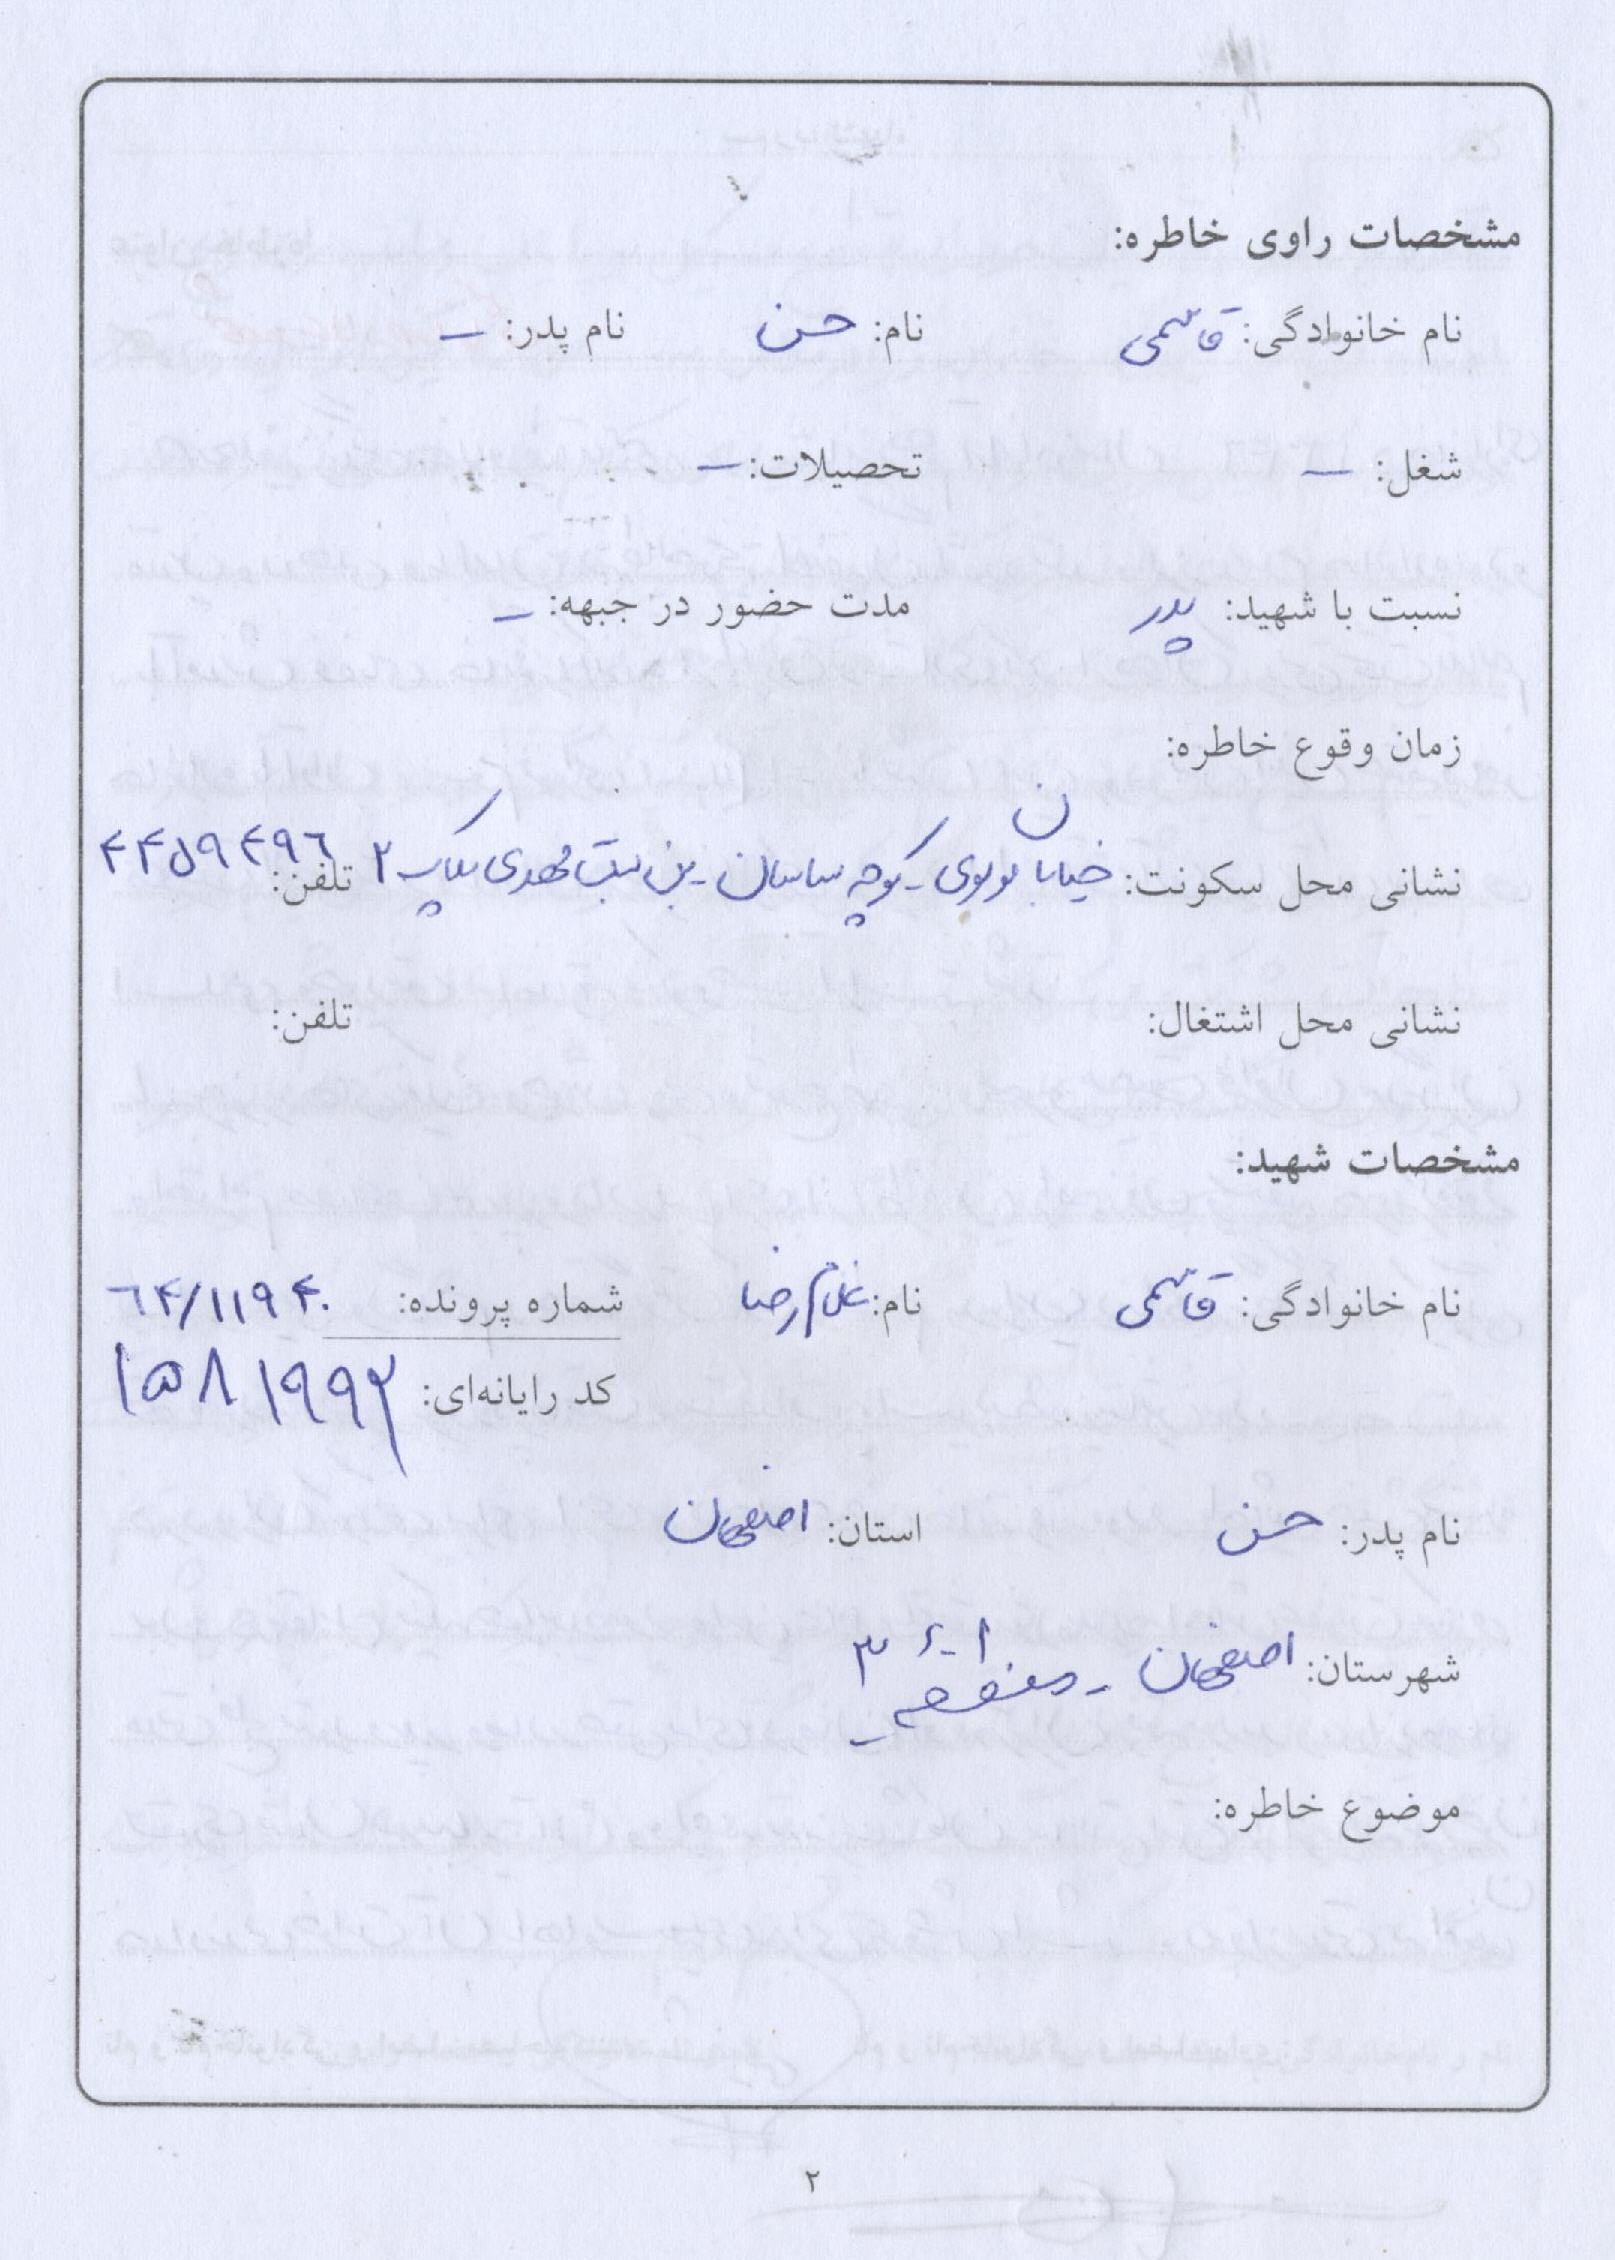 مشخصات راوی خاطره:
نام خانوادگی: قاسمی نام: حسن نام پدر: –
شغل: – تحصیلات: –
نسبت با شهید: پدر مدت حضور در جبهه: –
زمان وقوع خاطره:
نشانی محل سکونت: خیابان مولوی - کوچه ساسان - بن بست مهدی پلاک ۲ تلفن: ۴۴۵۹۴۹۶
نشانی محل اشتغال: تلفن:
مشخصات شهید:
نام خانوادگی: قاسمی نام: غلامرضا شماره پرونده: ۶۴/۱۱۹۴۰
کد رایانه‌ای: ۱۵۸۱۹۹۲
نام پدر: حسن استان: اصفهان
شهرستان: اصفهان - منطقه ۳
موضوع خاطره:
۲